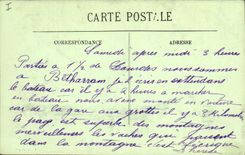 I
CARTE POSTALE
CORRESPONDANCE
ADRESSE
Samedi après midi 3 heures
Parties à 1 h de Lourdes nous sommes
à Bétharram je t'écris en attendant
le bateau car il y a 2 heures à marcher
en bateau nous avons monté en voiture
car de la gare aux grottes il y a 3 kilomè
le pays est superbe des montagnes
merveilleuses les vaches qui paissent
dans la montagne c'est féerique